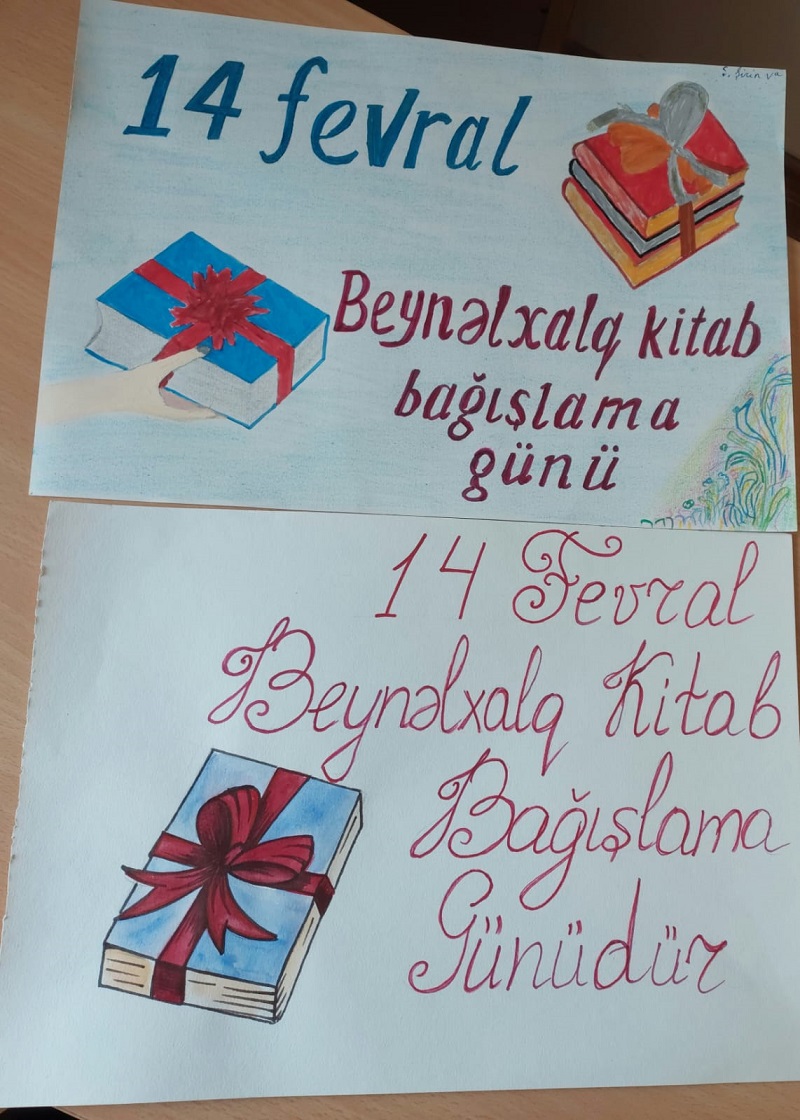 14 fevral
Beynəlxalq kitab
bağışlama
günü
14 Fevral
Beynəlxalq Kitab
Bağışlama
Günüdür